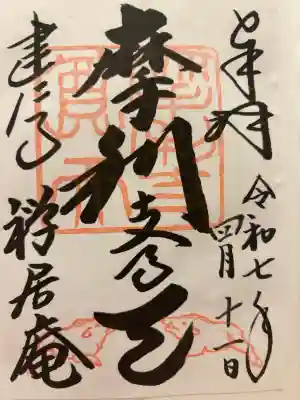 奉拝
令和七年
四月十一日
摩利支尊天
建仁寺
禅居庵